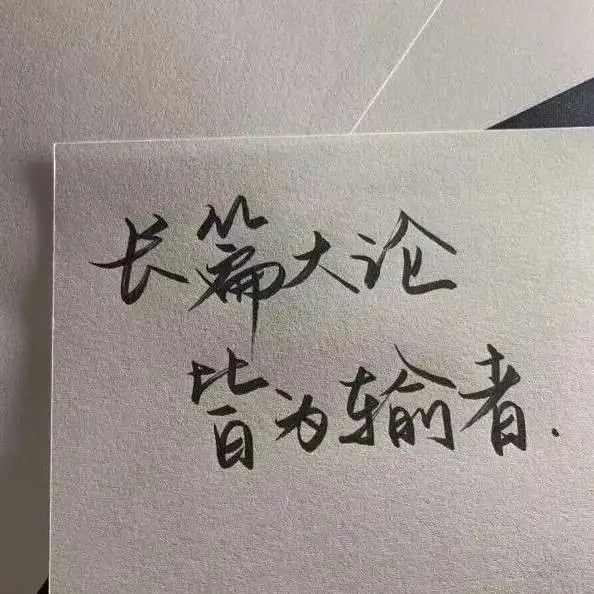 长篇大论
皆为输者.